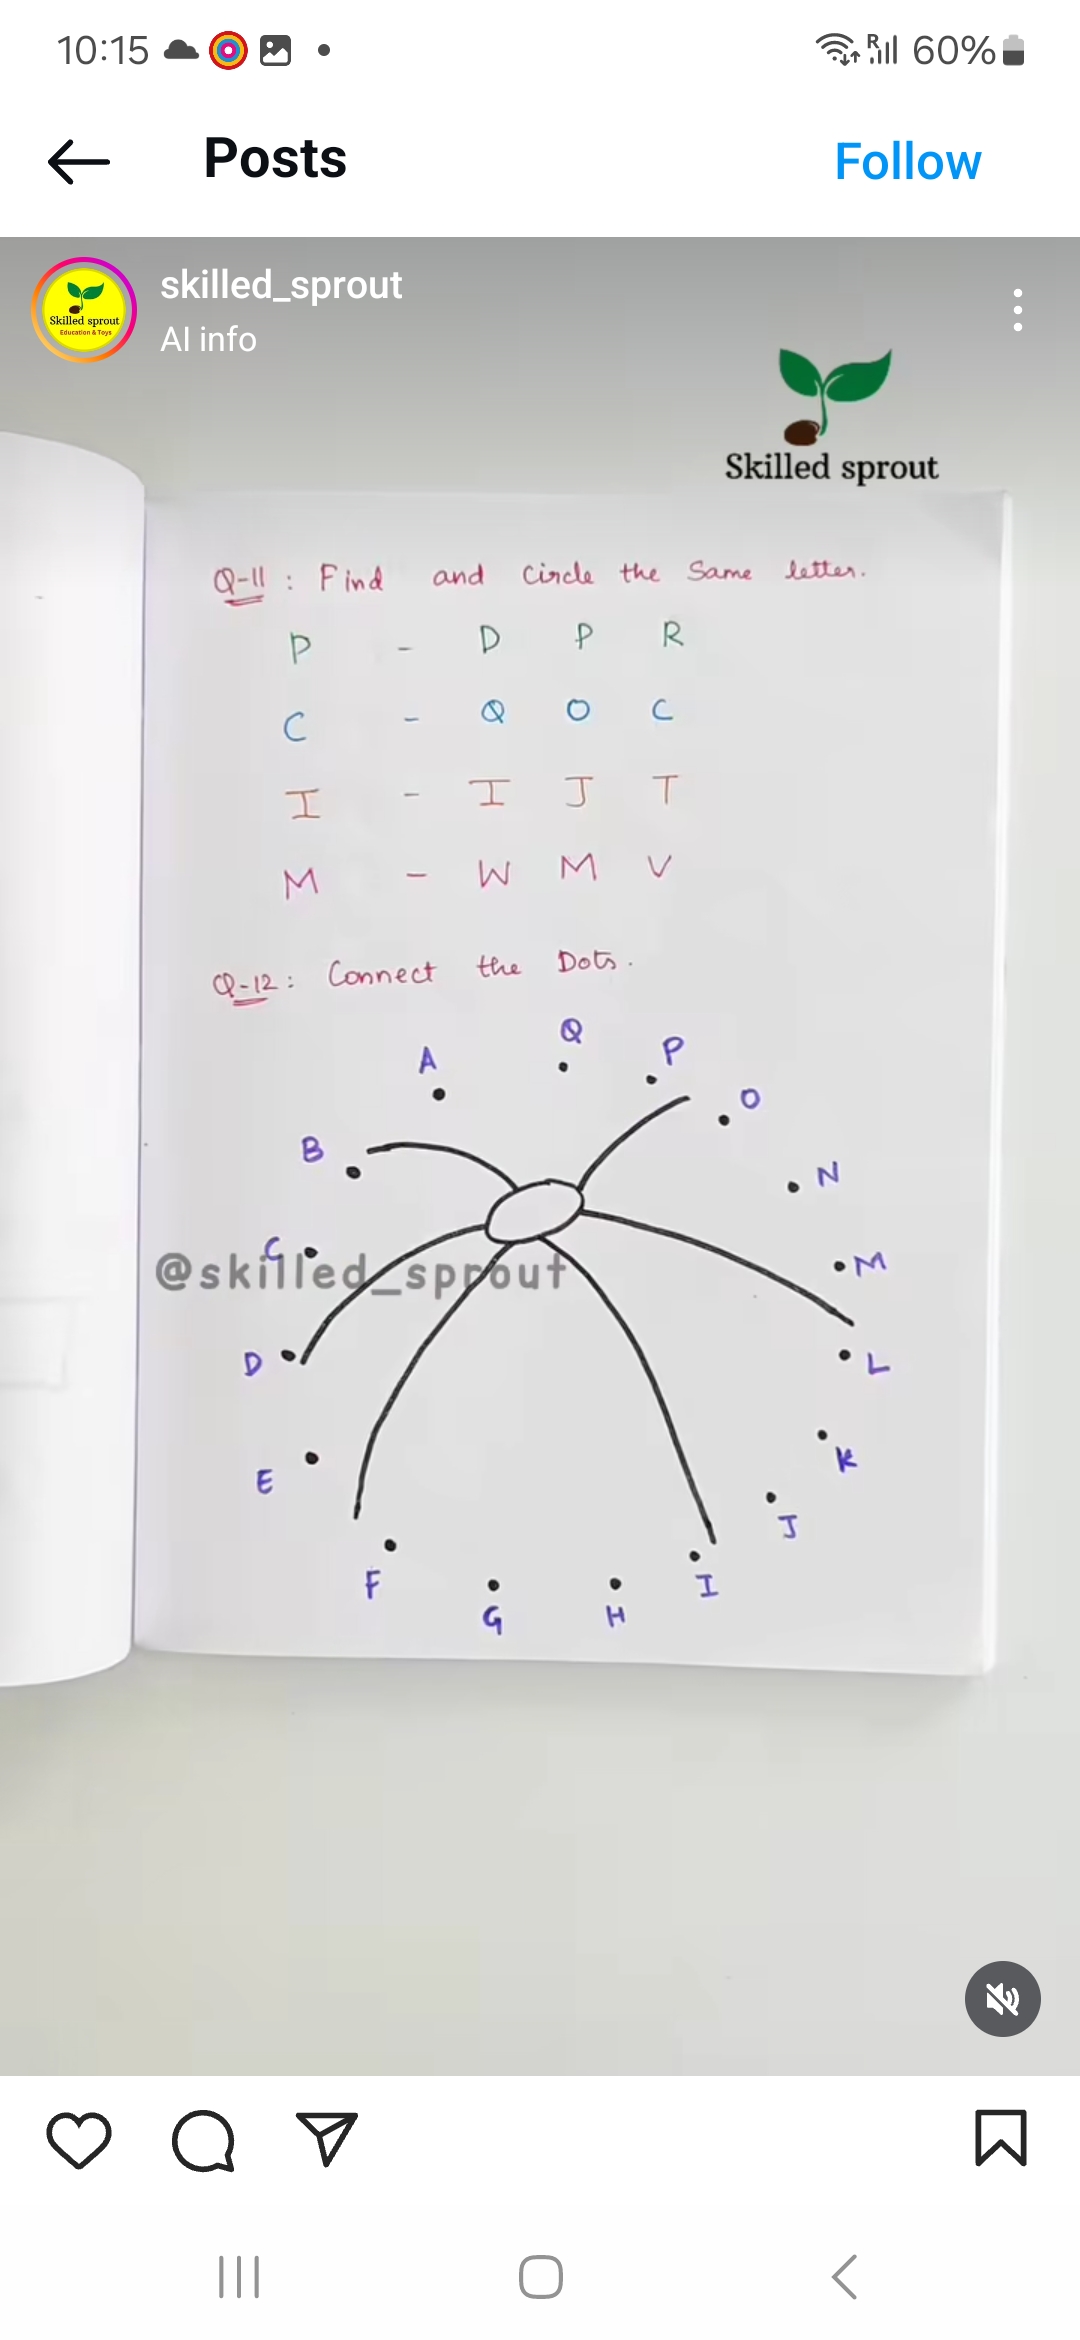 10:15
R 60%
Posts
Follow
skilled_sprout
AI info
Skilled sprout
Education & Toys
Skilled sprout
Q-11 : Find and Circle the Same letter.
P - D P R
C - Q O C
I - I J T
M - W M V
Q-12 : Connect the Dots.
Q
A
P
O
B
N
C
M
@skilled_sprout
D
L
E
K
J
F
I
G
H